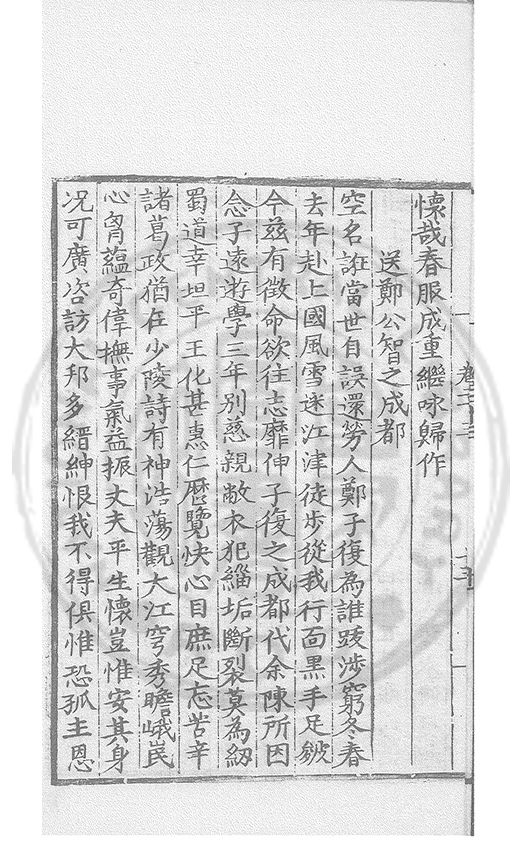 懷哉春服成重繼咏歸作
送鄭公智之成都
空名誑當世自誤還勞人鄭子復為誰跋涉窮冬春
去年赴上國風雪迷江津徒步從我行面黑手足皴
今茲有徵命欲往志靡伸子復之成都代余陳所因
念子遠遊學三年別慈親敝衣犯緇垢斷裂莫為紉
蜀道幸坦平王化甚惠仁歷覽快心目庶足忘苦辛
諸葛政猶在少陵詩有神浩蕩觀大江穹秀瞻峨岷
心胷蘊奇偉撫事氣益振丈夫平生懷豈惟安其身
况可廣咨訪大邦多縉紳恨我不得俱惟恐孤主恩